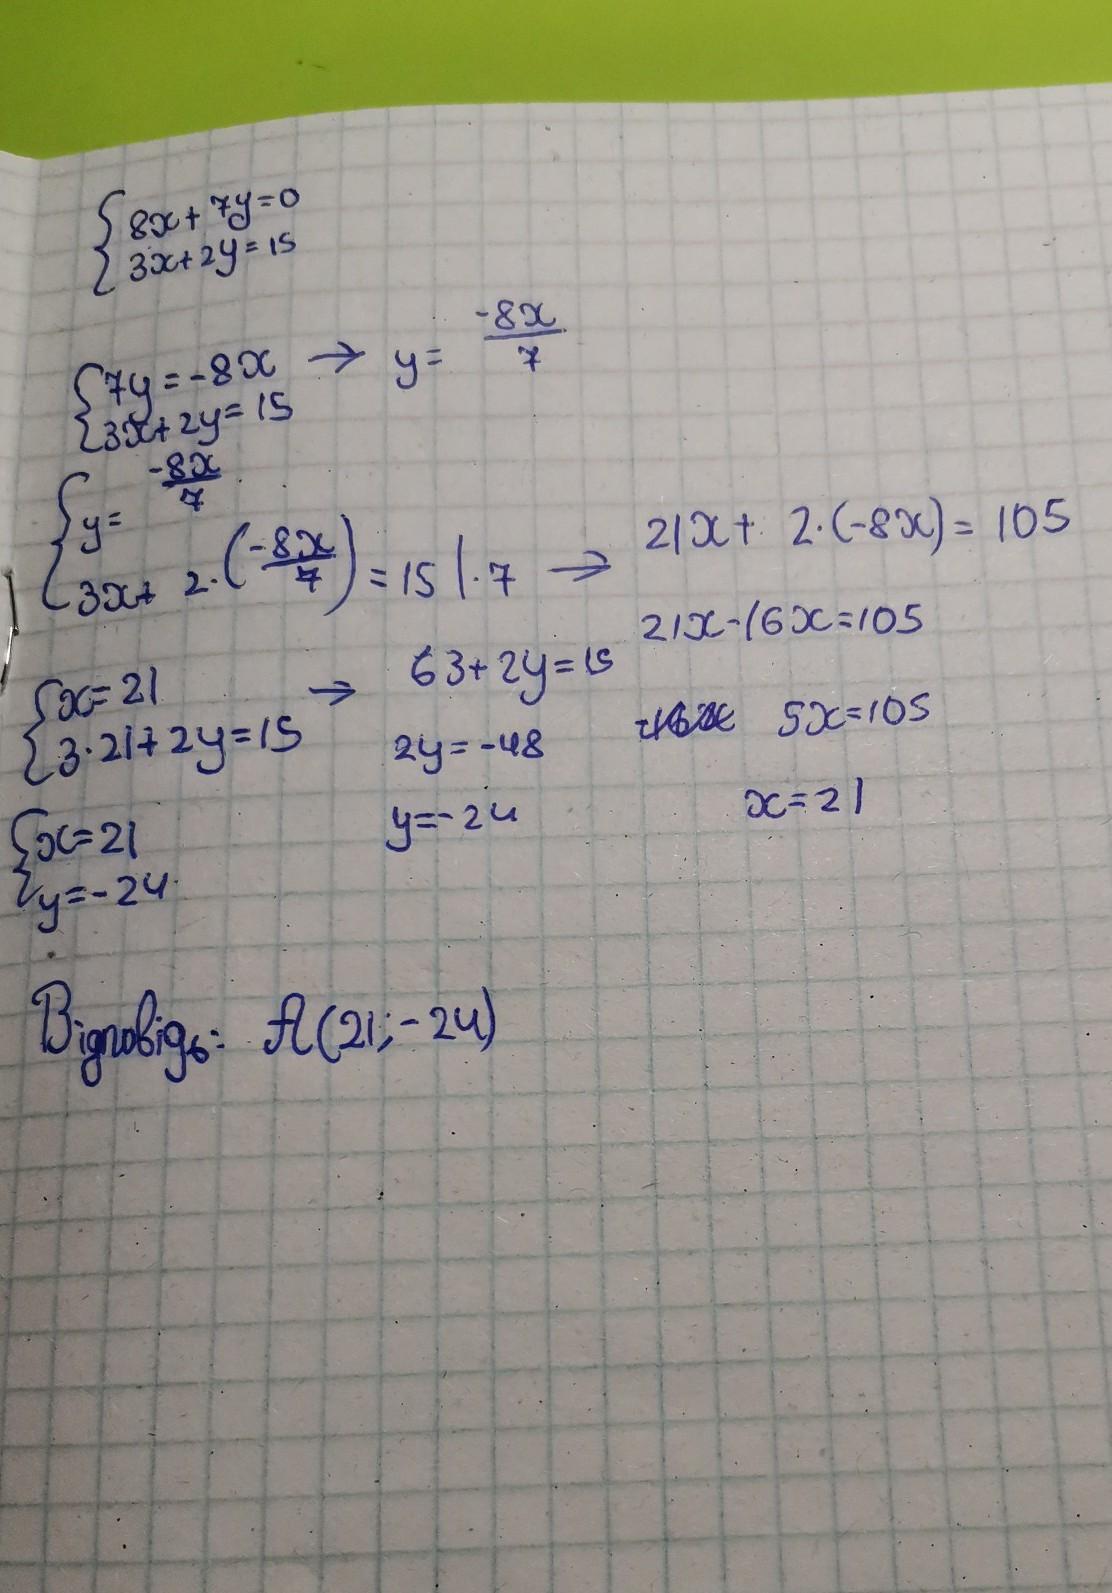 {8x+7y=0
3x+2y=15
{7y=-8x → y= -8x/7
3x+2y=15
{y= -8x/7
3x+ 2·(-8x/7)=15 |·7 → 21x+ 2·(-8x)= 105
21x-16x=105
5x=105
x=21
{x=21 → 63+2y=15
3·21+2y=15
2y=-48
y=-24
{x=21
y=-24
Відповідь: A(21;-24)